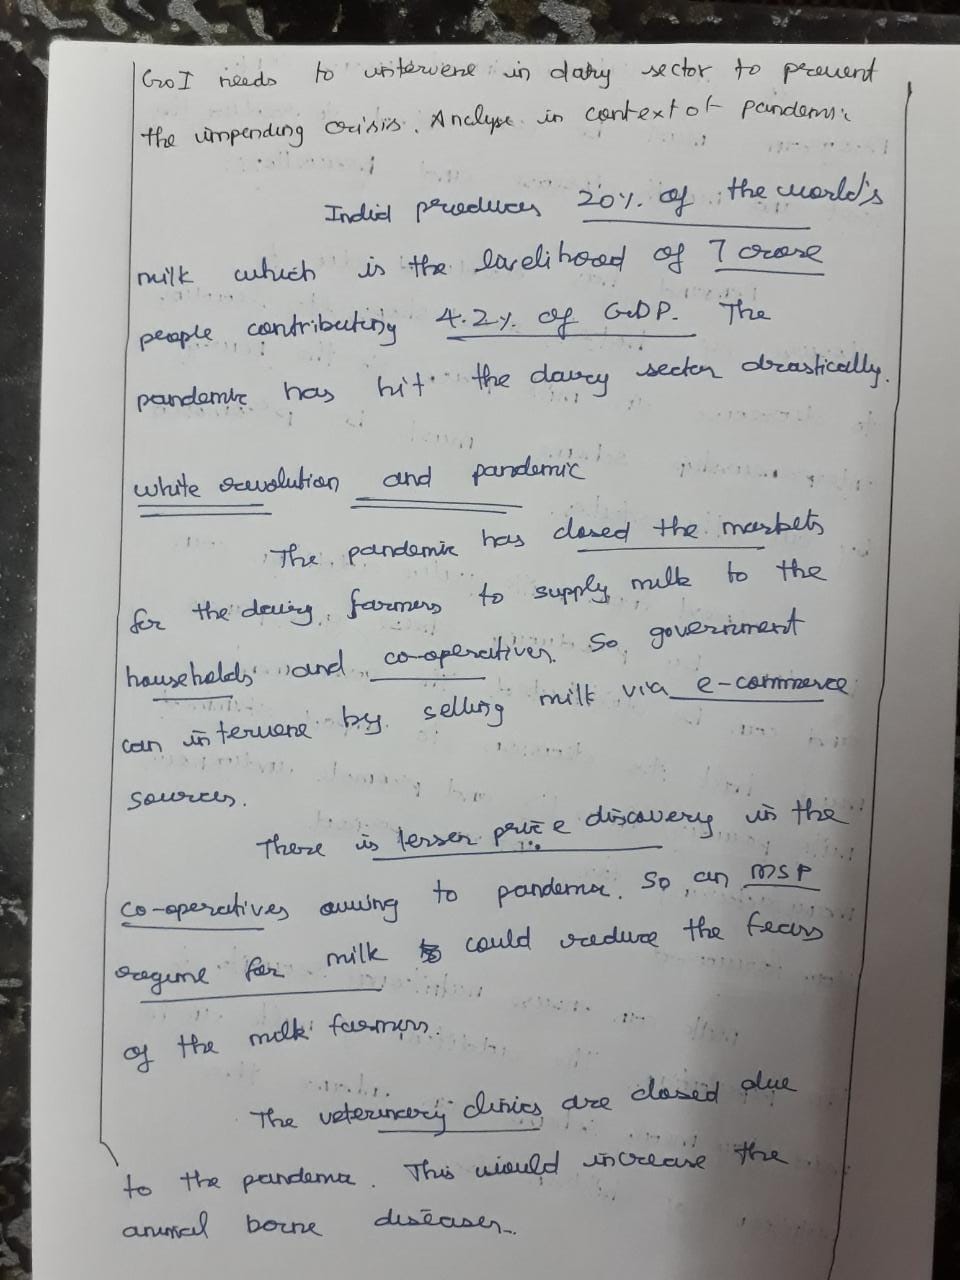 GoI needs to intervene in dairy sector to prevent
the impending crisis. Analyse in context of pandemic
India produces 20% of the world's
milk which is the livelihood of 7 crore
people contributing 4.2% of GDP. The
pandemic has hit the dairy sector drastically.
white revolution and pandemic
The pandemic has closed the markets
for the dairy farmers to supply milk to the
households and co-operatives. So government
can intervene by selling milk via e-commerce
sources.
There is lesser price discovery in the
co-operatives owing to pandemic. So an MSP
regime for milk could reduce the fears
of the milk farmers.
The veterinary clinics are closed due
to the pandemic. This would increase the
animal borne diseases.